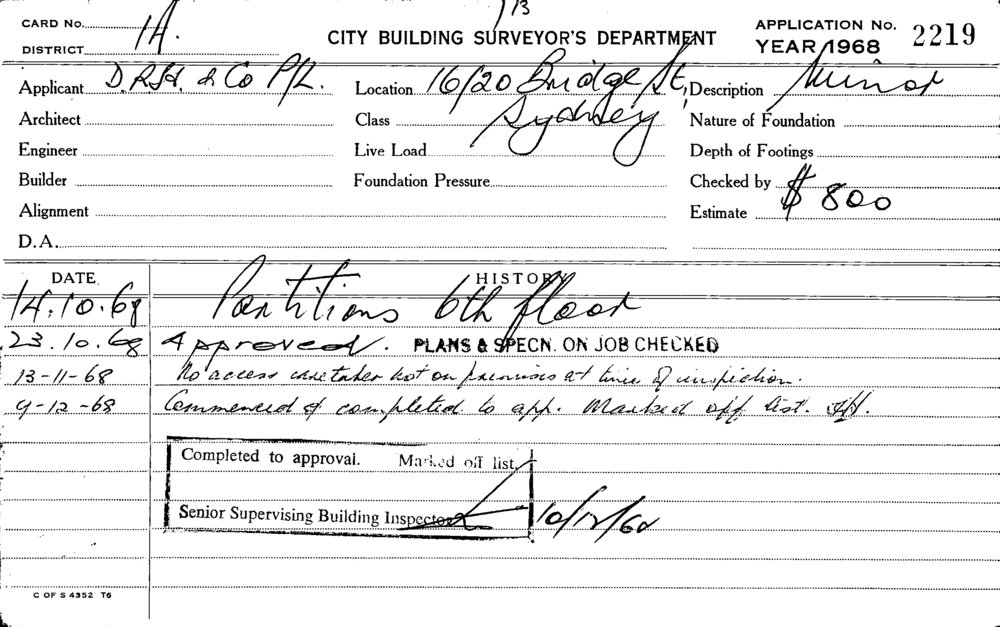 13
CARD No. 1A.
DISTRICT
CITY BUILDING SURVEYOR'S DEPARTMENT
APPLICATION No. 2219
YEAR 1968
Applicant D.R.H. & Co P/L. Location 16/20 Bridge St, Description Minor
Architect Class Sydney Nature of Foundation
Engineer Live Load Depth of Footings
Builder Foundation Pressure Checked by
Alignment Estimate $800
D.A.
DATE HISTORY
14.10.68 Partitions 6th floor
23.10.68 Approved. PLANS & SPECN. ON JOB CHECKED
13-11-68 No access caretaker not on premises at time of inspection.
9-12-68 Commenced & completed to app. Marked off list.
Completed to approval. Marked off list.
Senior Supervising Building Inspector 10/12/68
C OF S 4352 T6